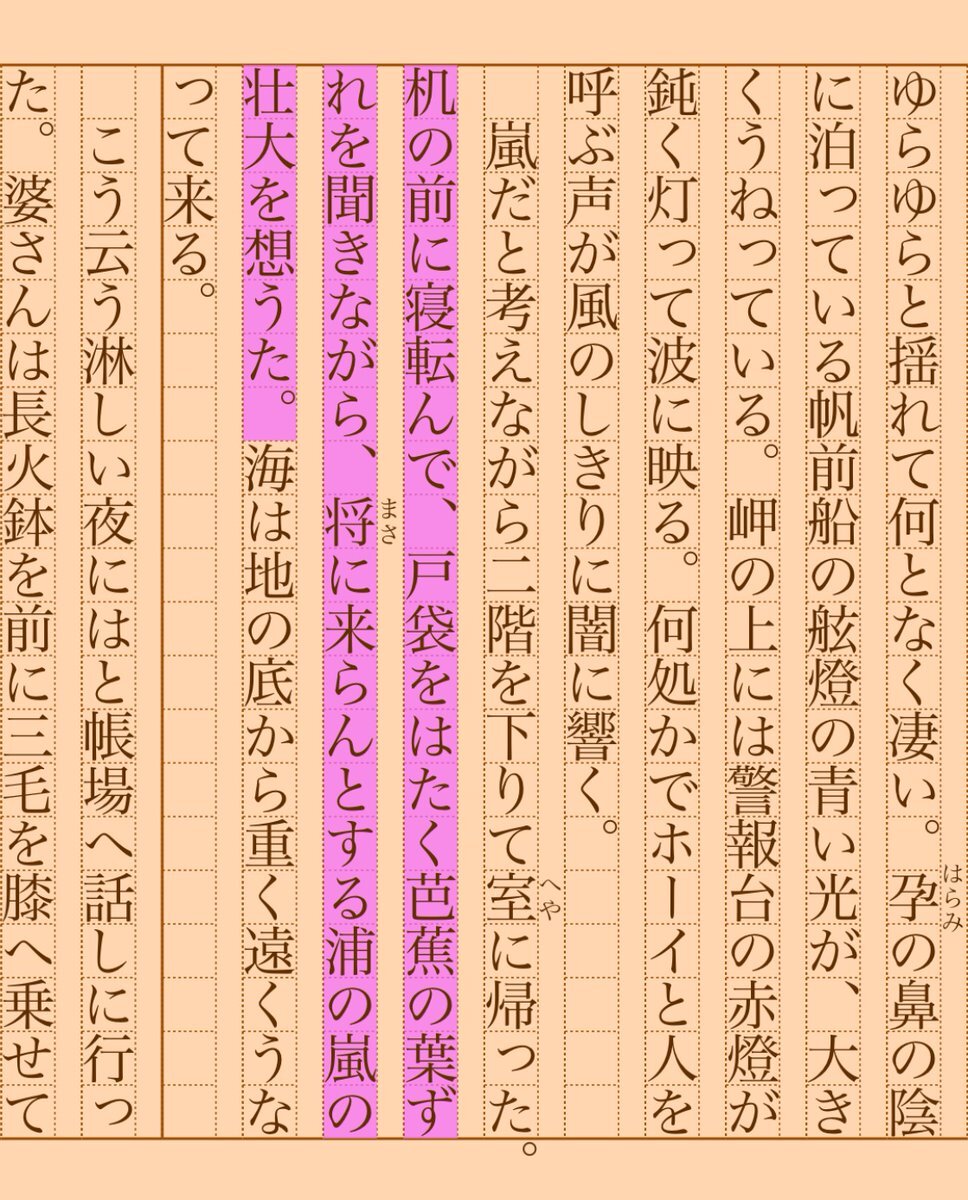 ゆらゆらと揺れて何となく凄い。孕の鼻の陰
はらみ
に泊っている帆前船の舷燈の青い光が、大き
くうねっている。岬の上には警報台の赤燈が
鈍く灯って波に映る。何処かでホーイと人を
呼ぶ声が風のしきりに闇に響く。
嵐だと考えながら二階を下りて室に帰った。
へや
机の前に寝転んで、戸袋をはたく芭蕉の葉ず
れを聞きながら、将に来らんとする浦の嵐の
まさ
壮大を想うた。海は地の底から重く遠くうな
って来る。
こう云う淋しい夜にはと帳場へ話しに行っ
た。婆さんは長火鉢を前に三毛を膝へ乗せて